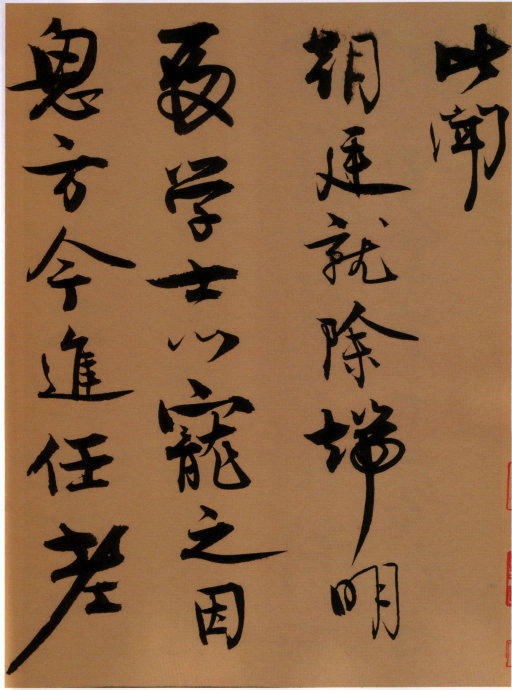 比聞
朝廷就除端明
殿学士以寵之因
思方今進任差